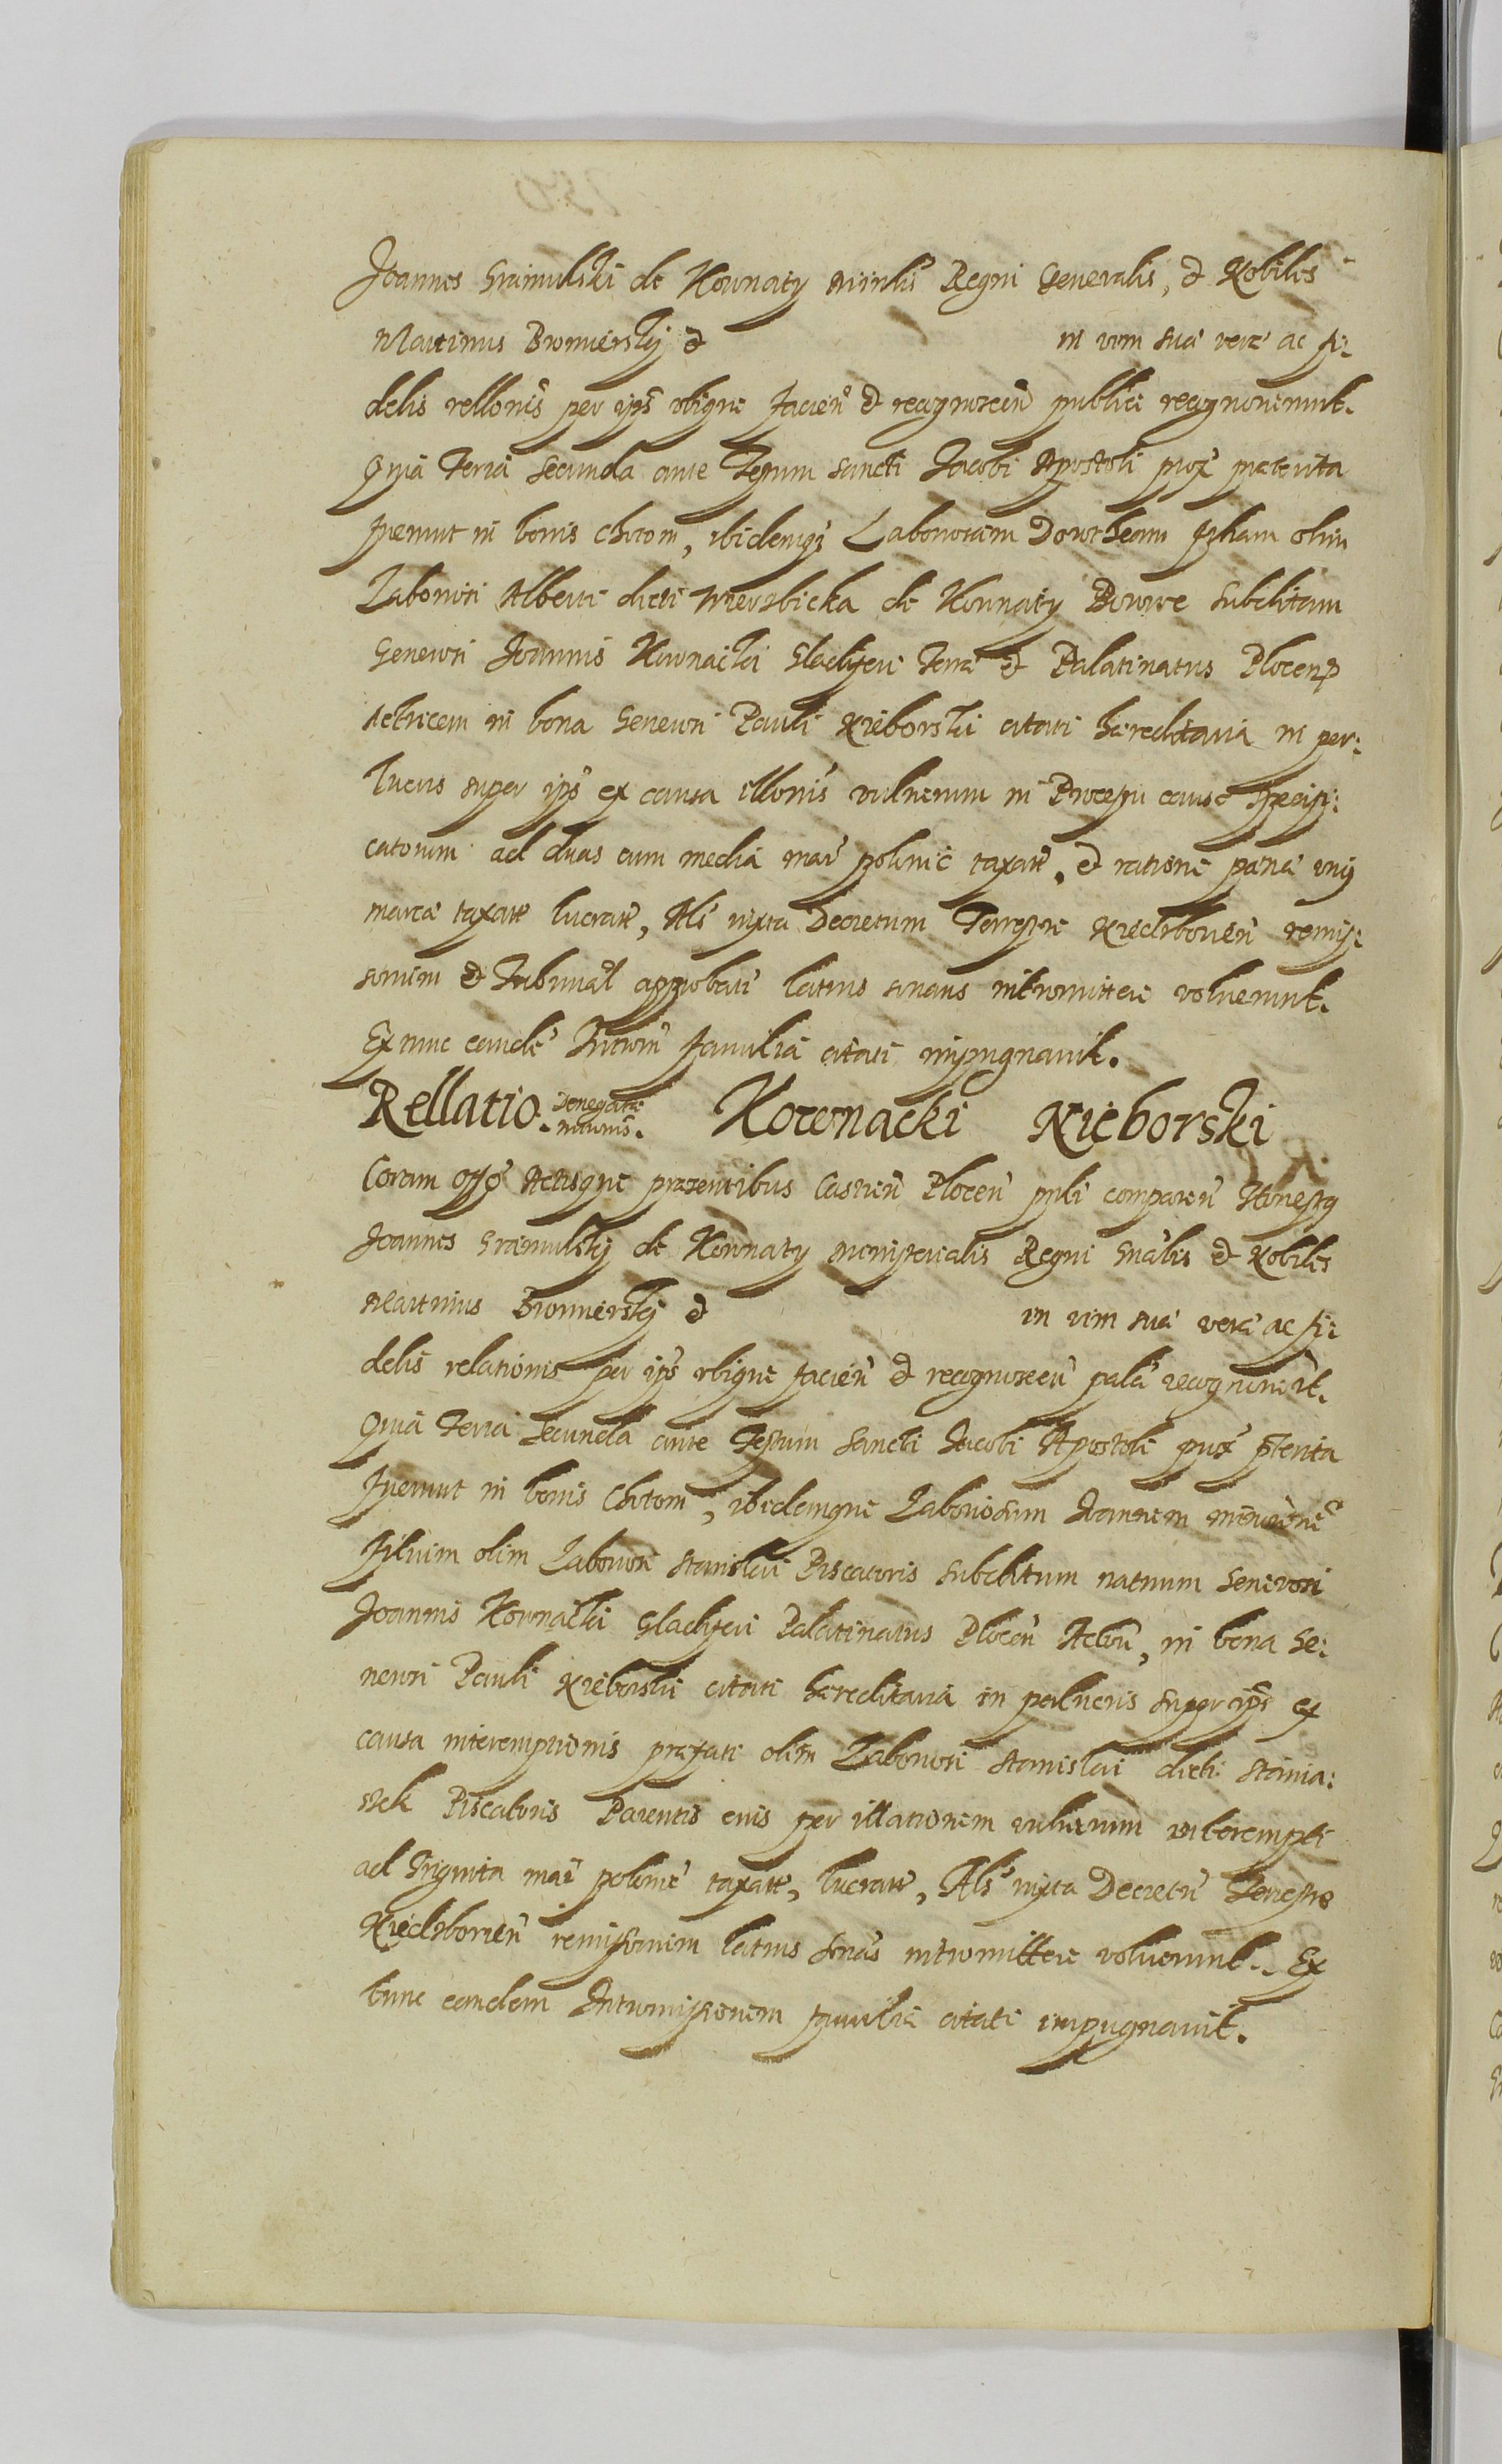 Joannes Sramulski de Kownaty minlis Regni Generalis, et Nobiles
Martinus Bromierskj et in vim suæ veræ ac fi:
delis rellonis per ips utique facien et recognoscen publice recognoverunt.
Quia Feria Secunda ante Festum Sancti Jacobi Apostoli prox præterita
fuerunt in bonis Chotom, ibidemq Laboriosam Dorotheam filiam olim
Laboriosi Alberti dicti Wierzbicka de Kownaty Borowe subditam
Generosi Joannis Kownaczki Gladiferi Terræ et Palatinatus Plocen
Actricem in bona Generosi Pauli Nieborski citati hæreditaria in per:
lucris super ips ex causa illonis vulnerum in Processu causæ specifi:
catorum ad duas cum media mar polonic taxatt, et ratione pænæ unius
marcæ taxatt lucratt, Als iuxta Decretum Terrestre Niedzboren remis:
sorium et Tribunal approbati latius sonans intromittere voluerunt.
Ex tunc eande Introm familia citati impugnavit.
Rellatio denegatæ intromis. Kownacki Nieborski
Coram offo Actisque præsentibus Castren Plocen psnli comparen Honestq
Joannes Sramulskj de Kownaty ministerialis Regni Gnalis et Nobiles
Martinus Bromierskj et in vim suæ veræ ac fi:
delis relationis per ips utique facien et recognoscen pala recognoverut.
Quia Feria Secunda ante Festum Sancti Jacobi Apostoli prox pterita
fuerunt in bonis Chotom, ibidemque Laboriosum Joannem
filium olim Laboriosi Stanislai Piscatoris subditum natiuum Generosi
Joannis Kownaczki Gladiferi Palatinatus Plocen Actore, in bona Ge:
nerosi Pauli Nieborski citati hæreditaria in perlucris super ips ex
causa interemptionis præfati olim Laboriosi Stanislai dicti Stania:
szek Piscatoris Parentis eius per illationem vulnerum interempti
ad Triginta mar polonic taxatt, lucratt, Als iuxta Decretu Terrestre
Niedzborien remissorium latius sonas intromittere voluerunt. Ex
tunc eandem Intromissionem familia citati impugnavit.